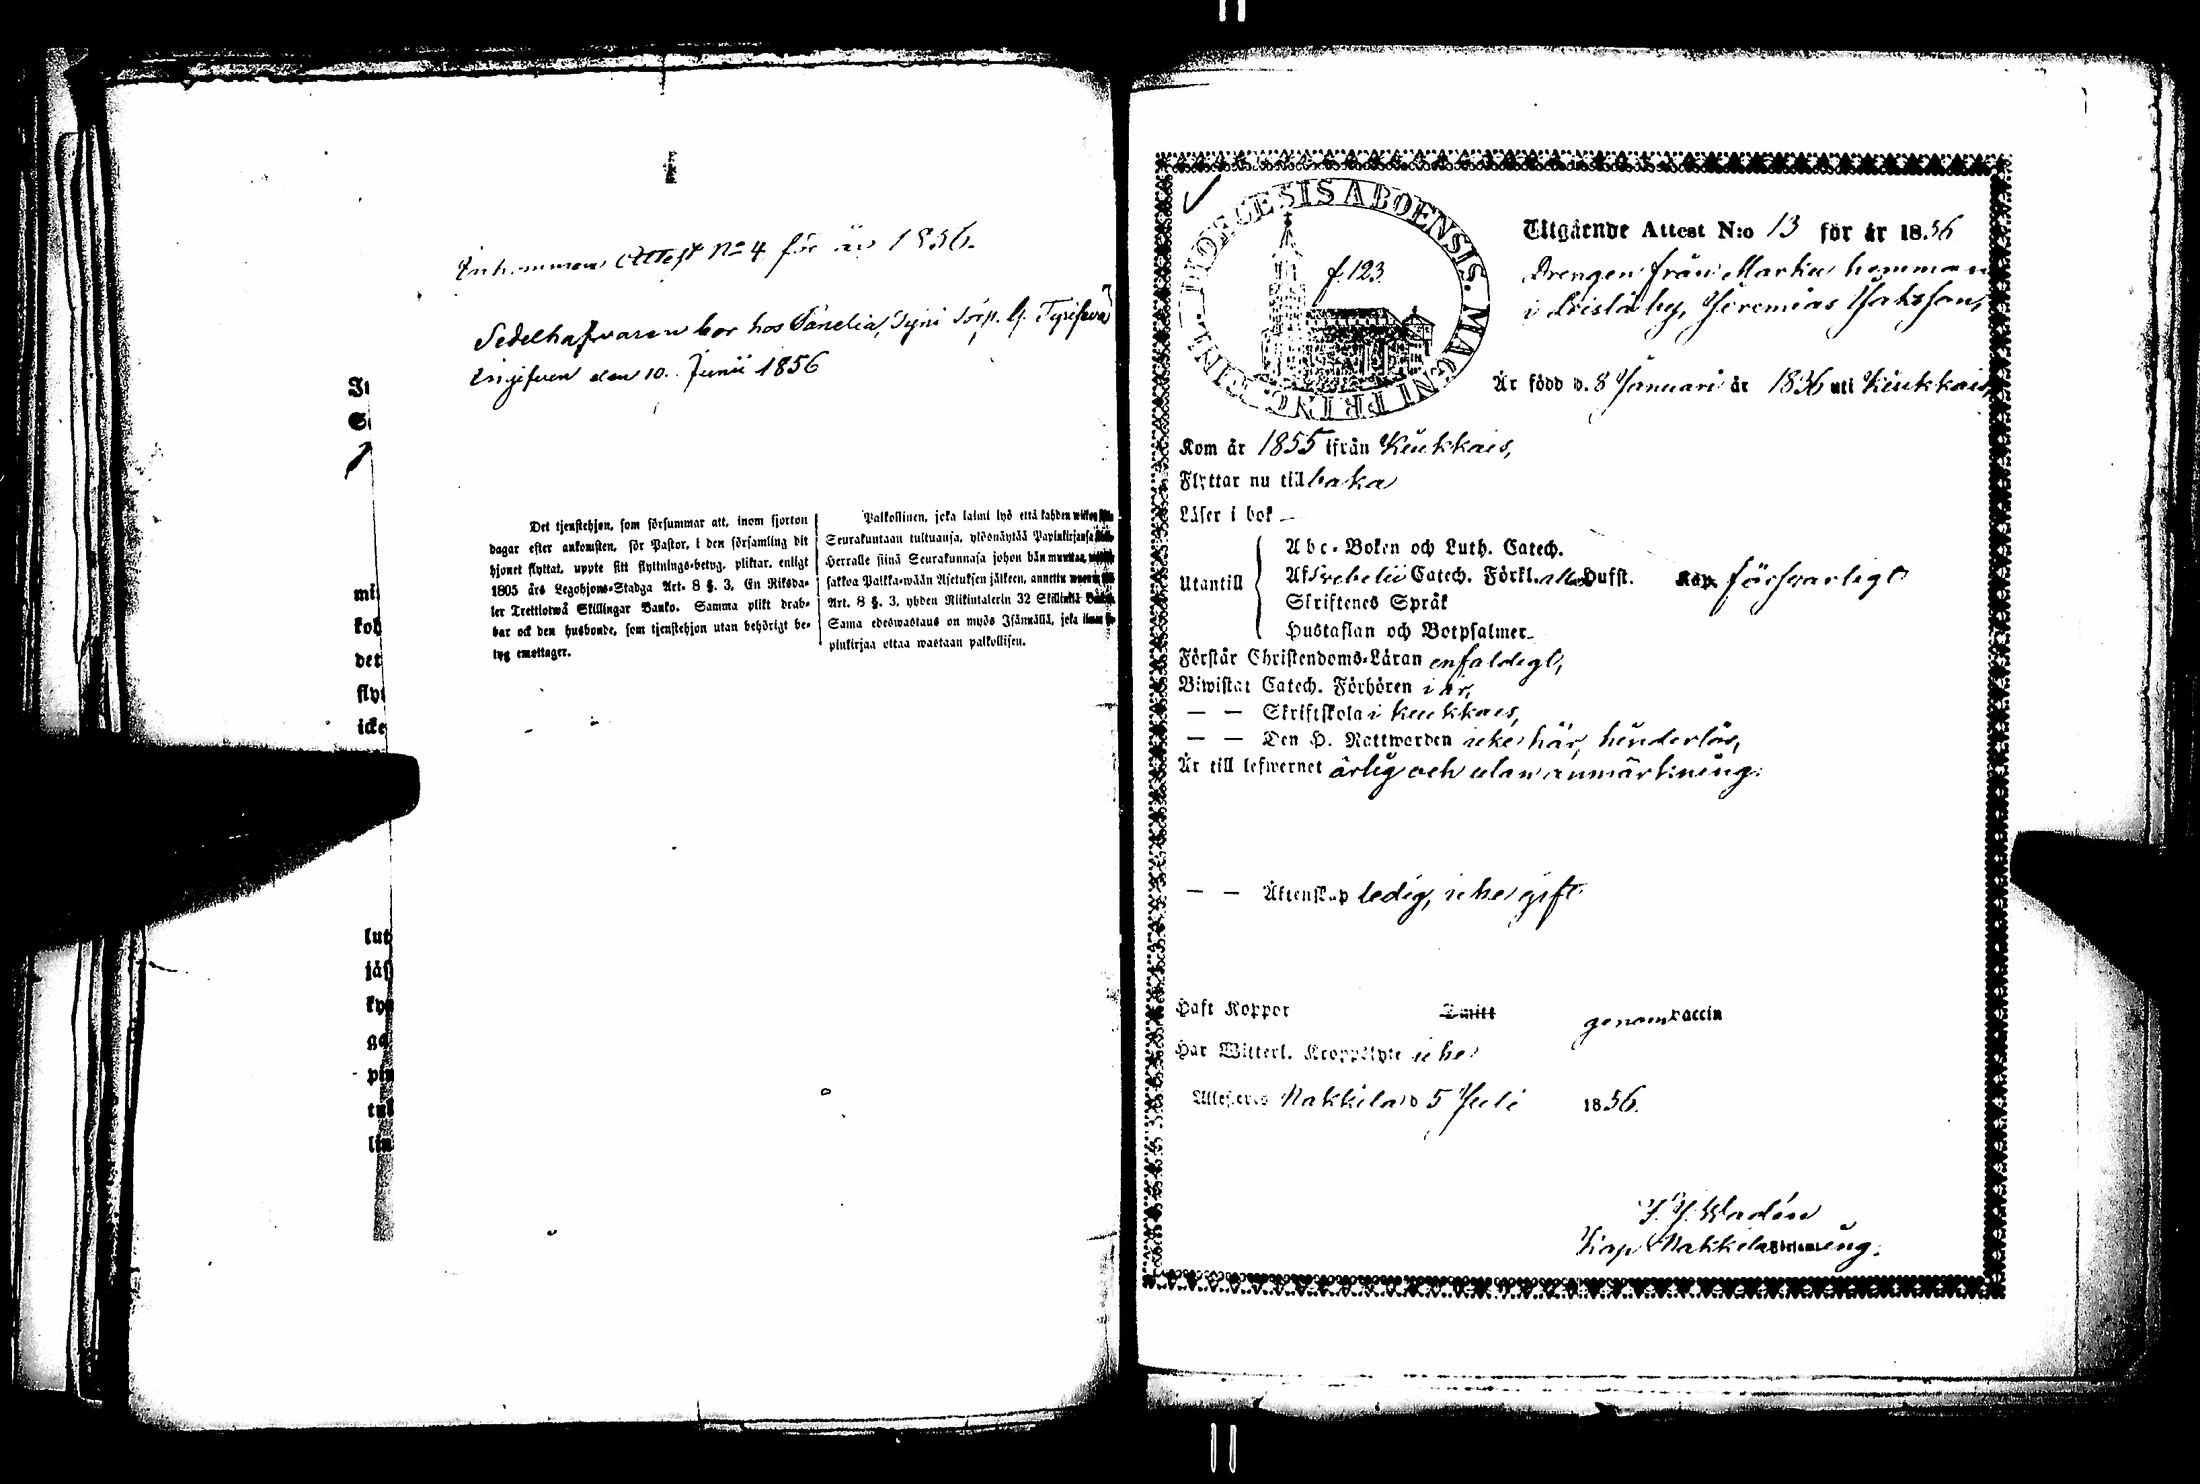 Inkommen Attest No 4 för år 1856.
Sedelhafvaren bor hos Panelia, Tyni torp.
den 10. Junii 1856
It
mi
kol
det
fly
icke
lut
jäs
pin
tul
Det tjenstehjon, som försummar att, inom fjorton
dagar efter ankomsten, för Pastor, i den församling dit
hjonet flyttat, uppte sitt flyttnings-betyg, pliktar, enligt
1805 års Legohjons-Stadga Art. 8 §. 3, En Riksda-
ler Trettiotwå Skillingar Banko. Samma plikt drab-
bar ock den husbonde, som tjenstehjon utan behörigt be-
tyg emottager.
Palkollinen, joka laimi lyö että kahden wiikon
Seurakuntaan tultuansa, ylösnäytää Papinkirjansa
Herralle siinä Seurakunnasa johon hän muuttaa,
sakkoa Palkka-wään Asetuksen jälkeen, annettu
Art. 8 §. 3, yhden Riikintalerin 32 Skillinkiä
Sama edeswastaus on myös Isännällä, joka ilman
pinkirjaa ottaa wastaan palkollisen.
DIOECESIS ABOENSIS. MAGNI PRINC.
f. 123
Utgående Attest N:o 13 för år 1856
Drengen från Marku hemman
i by, Jeremias Jakssson,
Är född d. 8 Januari år 1836 uti Kiukkais,
Kom år 1855 ifrån Kiukkais,
Flyttar nu tillbaka
Läser i bok –
Utantill
Abc-Boken och Luth. Catech.
Af Svebelii Catech. Förkl. alla Hufst. Kap. försvarligt
Skriftenes Språk
Hustaflan och Botpsalmer
Förstår Christendoms-Läran enfaldigt,
Biwistat Catech. Förhören i år,
— — Skriftskola i Kiukkais,
— — Den H. Nattwarden icke här, hinderlös,
Är till lefwernet ärlig och utan anmärkning.
— — Äktenskap ledig, icke gift.
Haft Koppor Smitt genom vaccin
Har Witterl. Kroppslyte icke
Attesteras Nakkila d 5 Juli 1856.
Wadén
Kap i Nakkila Församling.